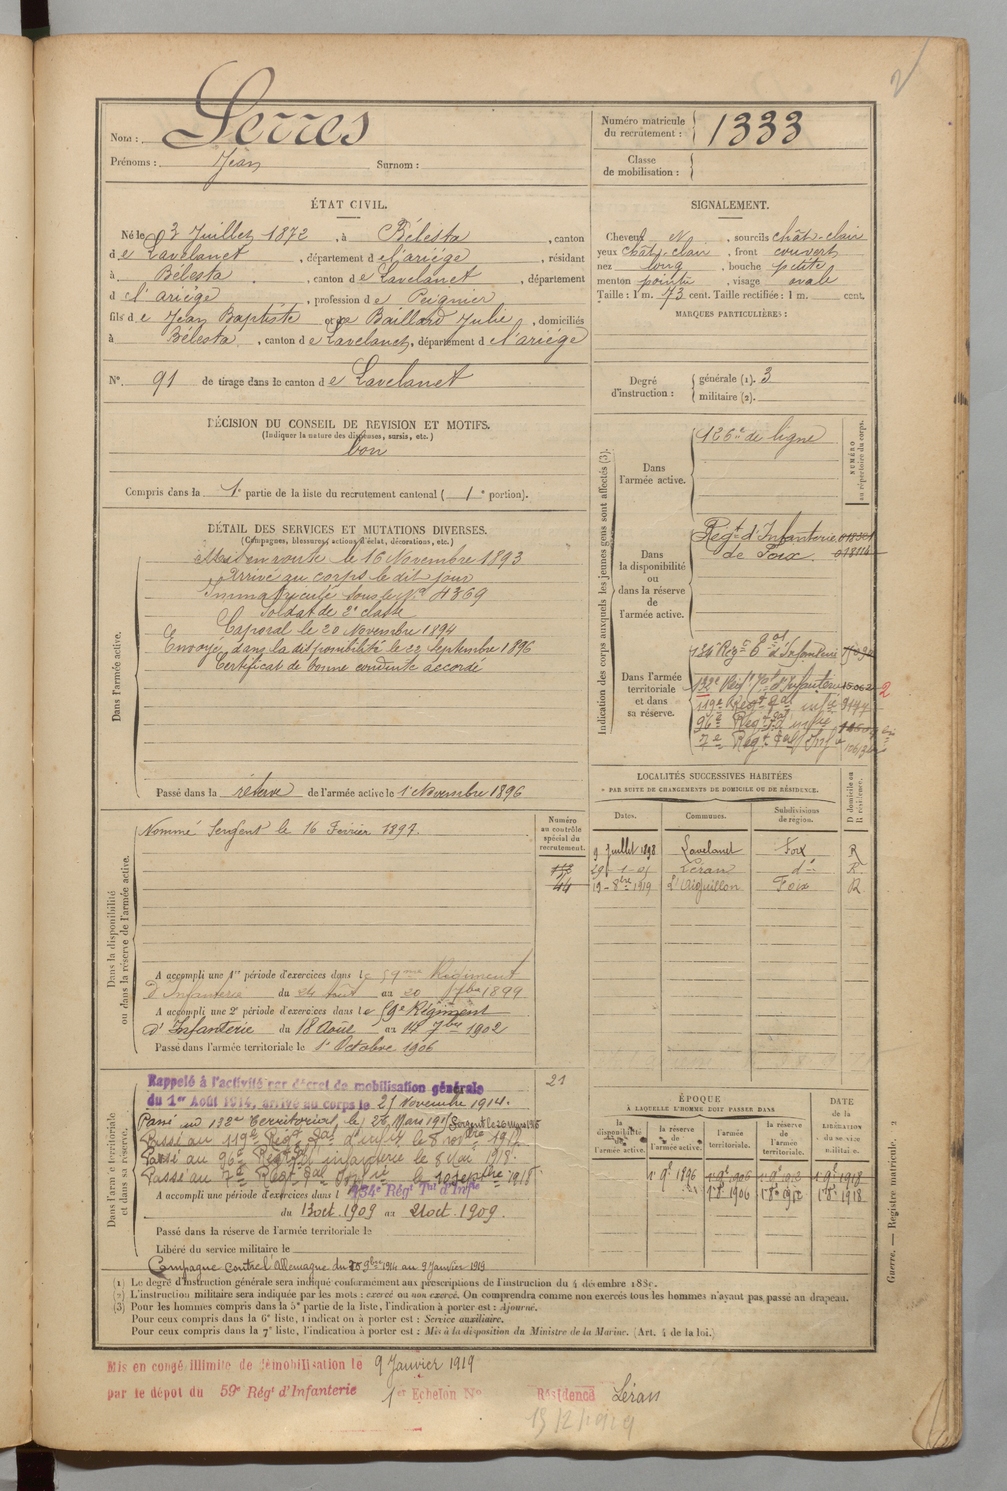 2
Nom : Serres
Prénoms : Jean Surnom :
Numéro matricule du recrutement : 1333
Classe de mobilisation :
ÉTAT CIVIL.
Né le 3 Juillet 1872, à Bélesta, canton
de Lavelanet, département de l'ariége, résidant
à Bélesta, canton de Lavelanet, département
d l'ariége, profession de Peignier
fils de Jean Baptiste et de Baillard Julie, domiciliés
à Bélesta, canton de Lavelanet, département de l'ariége
N° 91 de tirage dans le canton de Lavelanet
SIGNALEMENT.
Cheveux N, sourcils chât-clair
yeux chât-clair, front couvert
nez long, bouche petite
menton pointu, visage ovale
Taille : 1 m. 73 cent. Taille rectifiée : 1 m. cent.
MARQUES PARTICULIÈRES :
Degré d'instruction : générale (1). 3
militaire (2).
DÉCISION DU CONSEIL DE REVISION ET MOTIFS.
(Indiquer la nature des dispenses, sursis, etc.)
bon
Compris dans la 1e partie de la liste du recrutement cantonal ( 1e portion).
DÉTAIL DES SERVICES ET MUTATIONS DIVERSES.
(Campagnes, blessures, actions d'éclat, décorations, etc.)
Dans l'armée active.
Mis en route le 16 Novembre 1893
Arrivé au corps le dit jour
Immatriculé sous le N° 4369
Soldat de 2e classe
Caporal le 20 Novembre 1894
Envoyé dans la disponibilité le 22 Septembre 1896
Certificat de bonne conduite accordé
Passé dans la réserve de l'armée active le 1 Novembre 1896
Indication des corps auxquels les jeunes gens sont affectés (3).
NUMÉRO au répertoire du corps.
Dans l'armée active.
126e de ligne
Dans la disponibilité ou dans la réserve de l'armée active.
Régt d'Infanterie
de Foix
Dans l'armée territoriale et dans sa réserve.
134e Régt tal d'Infanterie
132e Régt Tal d'Infanterie 15.062
2
119e Régt tal infie
96e Régt tal infie
7e Régt tal Infie
LOCALITÉS SUCCESSIVES HABITÉES
PAR SUITE DE CHANGEMENTS DE DOMICILE OU DE RÉSIDENCE.
D domicile ou R résidence.
Dates. Communes. Subdivisions de région.
9 Juillet 1898 Lavelanet Foix R
29-1-01 Léran d° R
19-8bre 1919 L'Aiguillon Foix R
Dans la disponibilité ou dans la réserve de l'armée active.
Numéro au contrôle spécial du recrutement.
Nommé Sergent le 16 Février 1897.
44
A accompli une 1re période d'exercices dans le 59eme Régiment
D'Infanterie du 24 Août au 20 7bre 1899
A accompli une 2e période d'exercices dans le 59e Régiment
d'Infanterie du 18 Août au 14 7bre 1902
Passé dans l'armée territoriale le 1er Octobre 1906
Dans l'armée territoriale et dans sa réserve.
21
Rappelé à l'activité par décret de mobilisation générale
du 1er Août 1914, arrivé au corps le 25 Novembre 1914.
Passé au 132e territorial, le 27 Mars 1915 Sergent le 26 mars 1915
Passé au 119e Régt tal d'infie le 8 1917
Passé au 96e Régt tal infanterie le 8 Mai 1918.
Passé au 7e Régt tal Infie le 10 septembre 1918
A accompli une période d'exercices dans l 134e Régt Tal d'Infie
du 13 oct. 1909 au 21 oct. 1909.
Passé dans la réserve de l'armée territoriale le
Libéré du service militaire le
Campagne contre l'Allemagne du 9bre 1914 au 9 Janvier 1919
ÉPOQUE
À LAQUELLE L'HOMME DOIT PASSER DANS
DATE de la LIBÉRATION du service militaire.
la disponibilité de l'armée active. la réserve de l'armée active. l'armée territoriale. la réserve de l'armée territoriale.
1r 9e 1896 1r 9e 1906 1r 9e 1912 1r 9e 1918
1r 8e 1906 1r 8e 1912 1r 8e 1918
Guerre. — Registre matricule. 2
(1) Le degré d'instruction générale sera indiqué conformément aux prescriptions de l'instruction du 4 décembre 1889.
(2) L'instruction militaire sera indiquée par les mots : exercé ou non exercé. On comprendra comme non exercés tous les hommes n'ayant pas passé au drapeau.
(3) Pour les hommes compris dans la 5e partie de la liste, l'indication à porter est : Ajourné.
Pour ceux compris dans la 6e liste, l'indication à porter est : Service auxiliaire.
Pour ceux compris dans la 7e liste, l'indication à porter est : Mis à la disposition du Ministre de la Marine. (Art. 4 de la loi.)
Mis en congé illimité de démobilisation le 9 Janvier 1919
par le dépôt du 59e Régt d'Infanterie 1er Echelon N° Résidence Léran